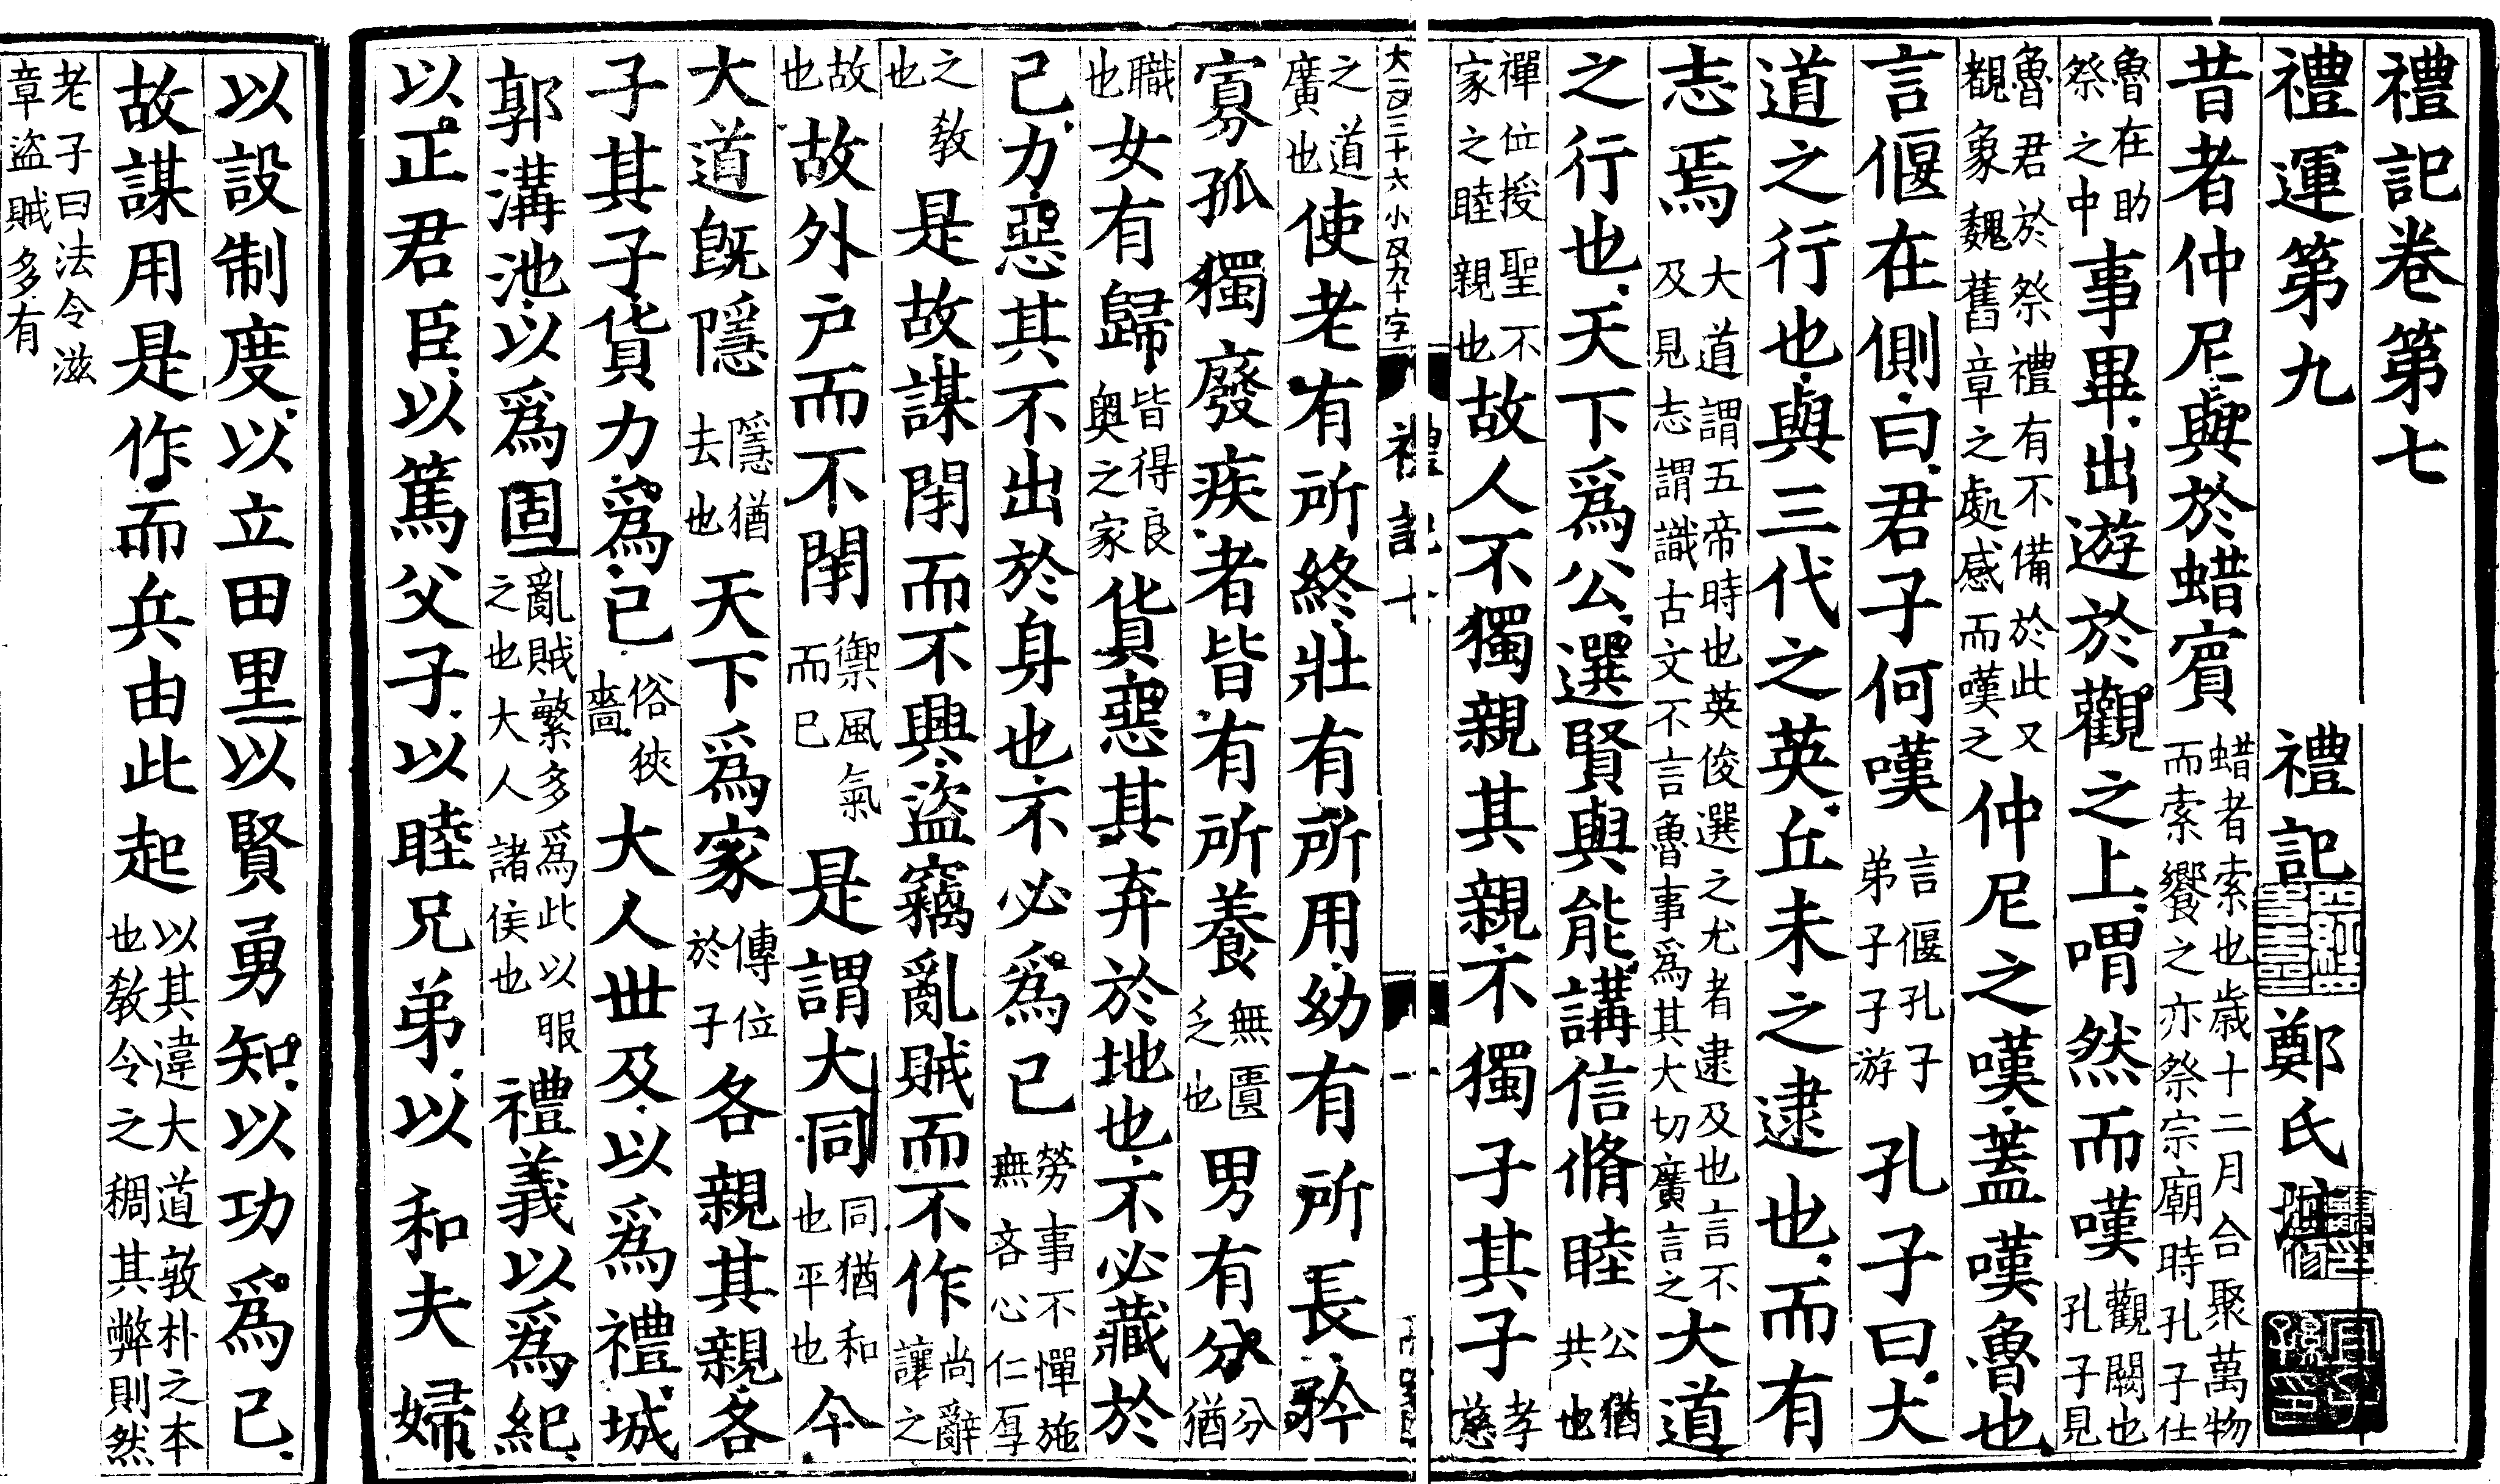 禮記卷第七
禮運第九 禮記 鄭氏注
昔者仲尼與於蜡賓蜡者索也歲十二月合聚萬物而索饗之亦祭宗廟時孔子仕
魯在助祭之中事畢出遊於觀之上喟然而嘆觀闕也孔子見
魯君於祭禮有不備於此又覩象魏舊章之處感而嘆之仲尼之嘆蓋嘆魯也
言偃在側曰君子何嘆言偃孔子弟子子游孔子曰大
道之行也與三代之英丘未之逮也而有
志焉大道謂五帝時也英俊選之尤者逮及也言不及見志謂識古文不言魯事爲其大切廣言之大道
之行也天下爲公選賢與能講信脩睦公猶共也
禪位授聖不家之睦親也故人不獨親其親不獨子其子孝慈
大三百三十六小五百九十字 禮記七 一
之道廣也使老有所終壯有所用幼有所長矜
寡孤獨廢疾者皆有所養無匱乏也男有分分猶
職也女有歸皆得良奧之家貨惡其弃於地也不必藏於
己力惡其不出於身也不必爲己勞事不憚施無吝心仁厚
之教也是故謀閉而不興盜竊亂賊而不作尚辭讓之
故也故外戶而不閉禦風氣而已是謂大同同猶和也平也今
大道既隱隱猶去也天下爲家傳位於子各親其親各
子其子貨力爲己俗狹嗇大人世及以爲禮城
郭溝池以爲固亂賊繁多爲此以服之也大人諸侯也禮義以爲紀
以正君臣以篤父子以睦兄弟以和夫婦
以設制度以立田里以賢勇知以功爲己
故謀用是作而兵由此起以其違大道敦朴之本也教令之稠其弊則然
老子曰法令滋章盜賊多有